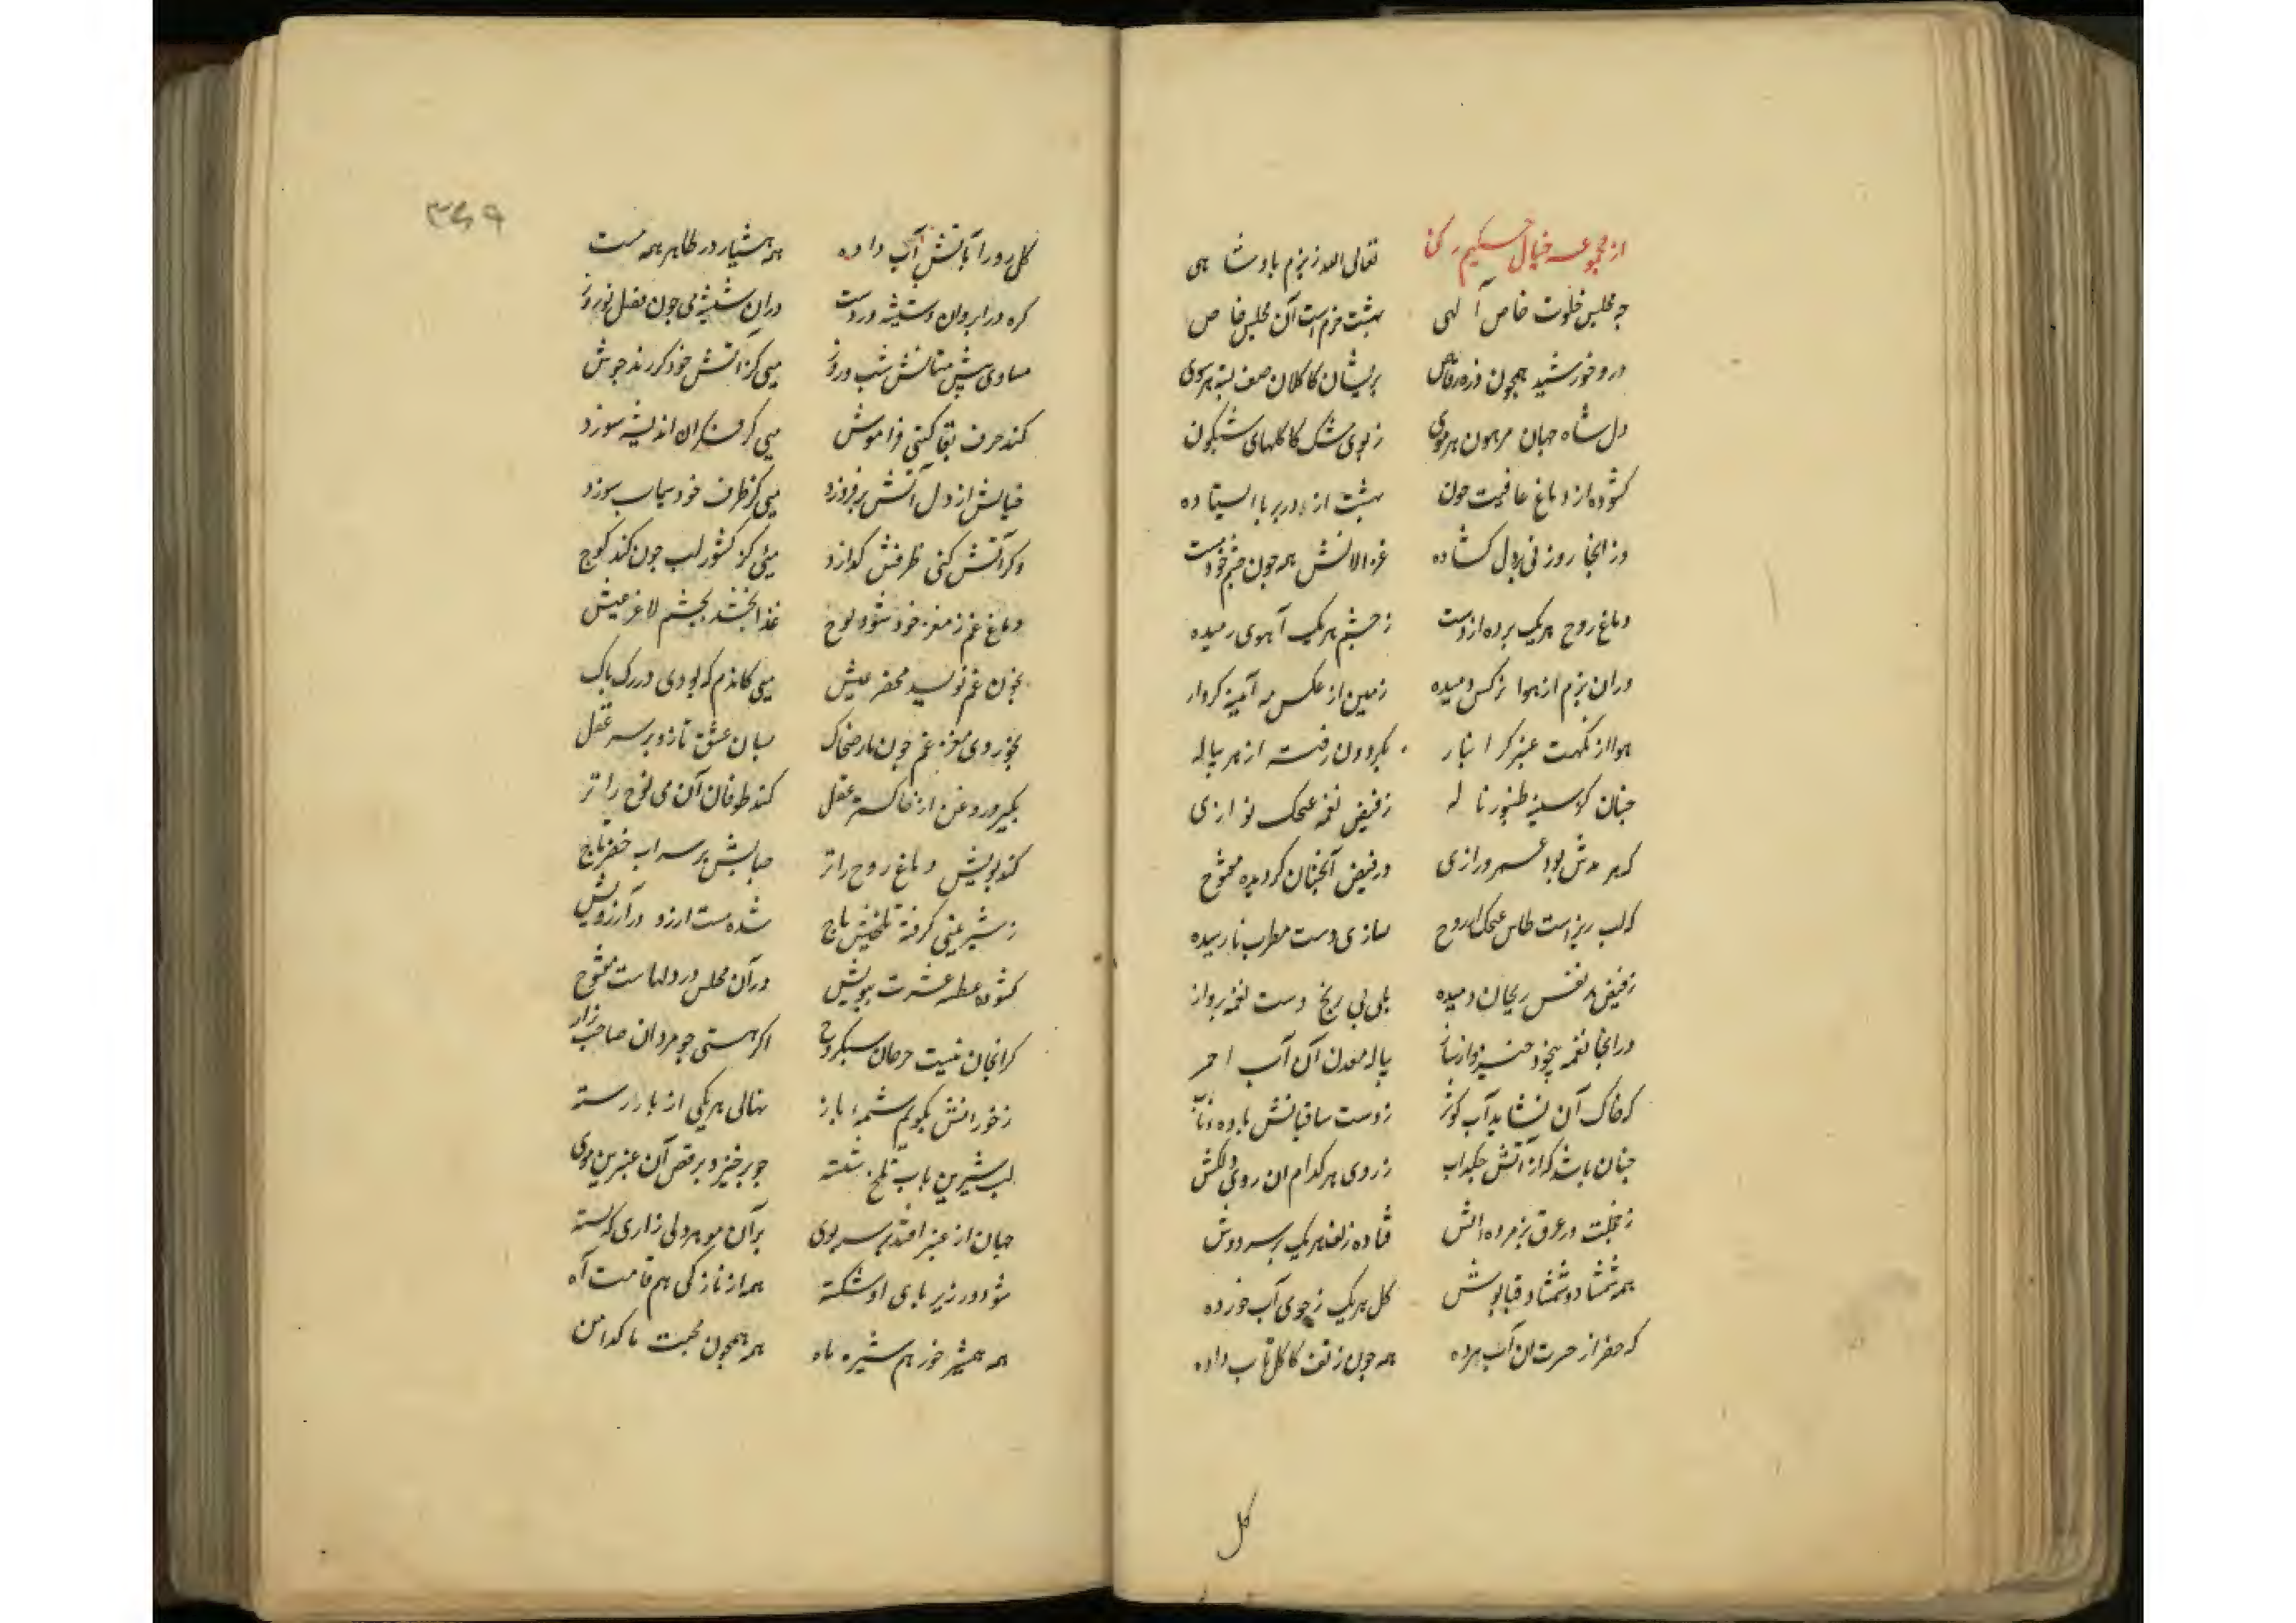 از مجموعه خیال حکیم رکنا
تعالی الله ز بزم بادشاهی
چه مجلس خلوت خاص آلهی
بهشت خرم است آن مجلس خاص
درو خورشید همچون ذره رقاص
پریشان کاکلان صف بسته هر سوی
دل شاه جهان مرهون هر موی
ز بوی مشک کاکلهای شبکون
کشوده از دماغ عافیت خون
بهشت از در بر پا ایستاده
وز انجا روزنی بر دل کشاده
غزالانش همه چون چشم خود مست
دماغ روح هر یک برده از دست
ز چشم هر یک آهوی رمیده
دران بزم از هوا نرکس دمیده
زمین از عکس مه آئینه کردار
هوا از نکهت عنبر کرانبار
بکردون رفته از هر پیاله
چنان کز سینه طنبور ناله
ز فیض نغمه عیجک نوازی
که هر مدش بود عمر درازی
در فیض آنچنان کردیده مفتوح
که لب ریز است طاس عیجک از روح
بسازی دست مطرب نارسیده
ز فیض هر نفس ریحان دمیده
بلی بی رنج دست نغمه پرواز
در انجا نغمه بیخود خیزد از ساز
پیاله معدن آن آب احمر
که خاک آن نشاید آب کوثر
ز دست ساقیانش باده ناب
چنان باشد که از آتش چکد آب
ز روی هر کدام ان روی دلکش
ز خجلت در عرق پژمرده آتش
فتاده زلف هر یک بر سر دوش
همه شمشاد و شمشاد قباپوش
کل هر یک ز جوی آب خورده
که خضر از حسرت ان آب مرده
همه چون زلف کاکل تاب داده
کل
۳۴۹
کل رو را بآتش آب داده
همه هشیار در ظاهر همه مست
کره در ابروان و شیشه در دست
دران شیشه می چون مقل نوروز
مساوی پیش مستانش شب و روز
میی کز آتش خود کر زند جوش
کند حرف بقا کیتی فراموش
میی کر فکر ان اندیشه سوزد
خیالش از دل آتش بر فروزد
میی کز ظرف خود سیماب سوزد
وکر آتش کنی ظرفش کدازد
میی کز کشور لب چون کند کوچ
دماغ غم ز مغز خود شود پوچ
غذا بخشد بجشم لاغر عیش
بخون غم نویسد محضر عیش
میی کاندم که بودی در رک تاک
بخوردی مغز غم چون مار ضحاک
بسان عشق تازد بر سر عقل
بکیرد روغن از خاکستر عقل
کند طوفان آن می نوح را تر
کند بویش دماغ روح را تر
حبابش بر سر اب خضر تاج
ز شیرینی کرفته تلخیش باج
شده مست ارزو در آرزویش
کشوده عطسه عشرت ببویش
در آن مجلس در دلهاست مفتوح
کرانجان نیست جز جان سبکروح
اکر هستی چو مردان صاحب راز
ز خورانش بکویم شمه باز
نهالی هر یکی از بار رسته
لب شیرین باب تلخ شسته
چو بر خیزد برقص آن عنبرین موی
جهان از عنبر افتد بر سر بوی
بر آن مو هر دلی زاری که بسته
شود در زیر پای او شکسته
همه از نازکی هم قامت آه
همه همشیر خور هم شیره ماه
همه همچون محبت پاکدامن